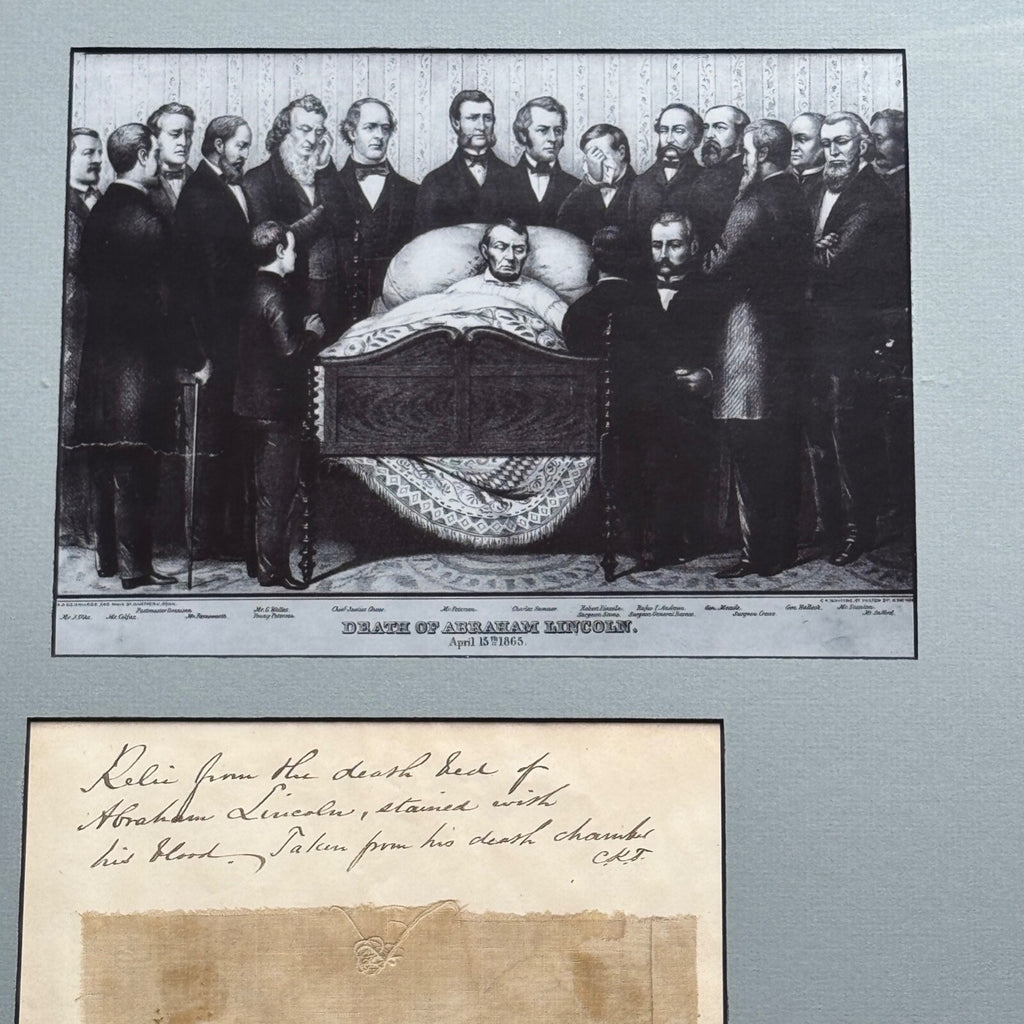 Mr. J. Otto. Mr. Colfax. Postmaster Dennison. Mr. Farnsworth. Mr. G. Welles. Young Peterson. Chief Justice Chase. Mr. Peterson. Charles Sumner. Robert Lincoln. Surgeon Stone. Rufus F. Andrews. Surgeon General Barnes. Gen. Meade. Surgeon Crane. Gen. Halleck. Mr. Stanton.
DEATH OF ABRAHAM LINCOLN.
April 15th 1865.
Relic from the death bed of
Abraham Lincoln, stained with
his blood. Taken from his death chamber
C.K.T.